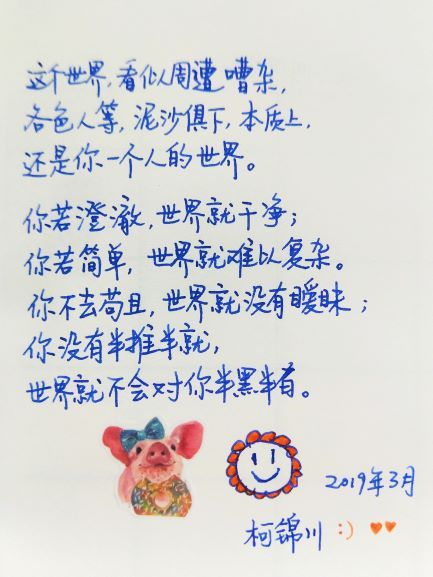 这个世界,看似周遭嘈杂,
各色人等,泥沙俱下,本质上,
还是你一个人的世界。
你若澄澈,世界就干净;
你若简单,世界就难以复杂。
你不去苟且,世界就没有暧昧;
你没有半推半就,
世界就不会对你半黑半白。
2019年3月
柯锦川 :)